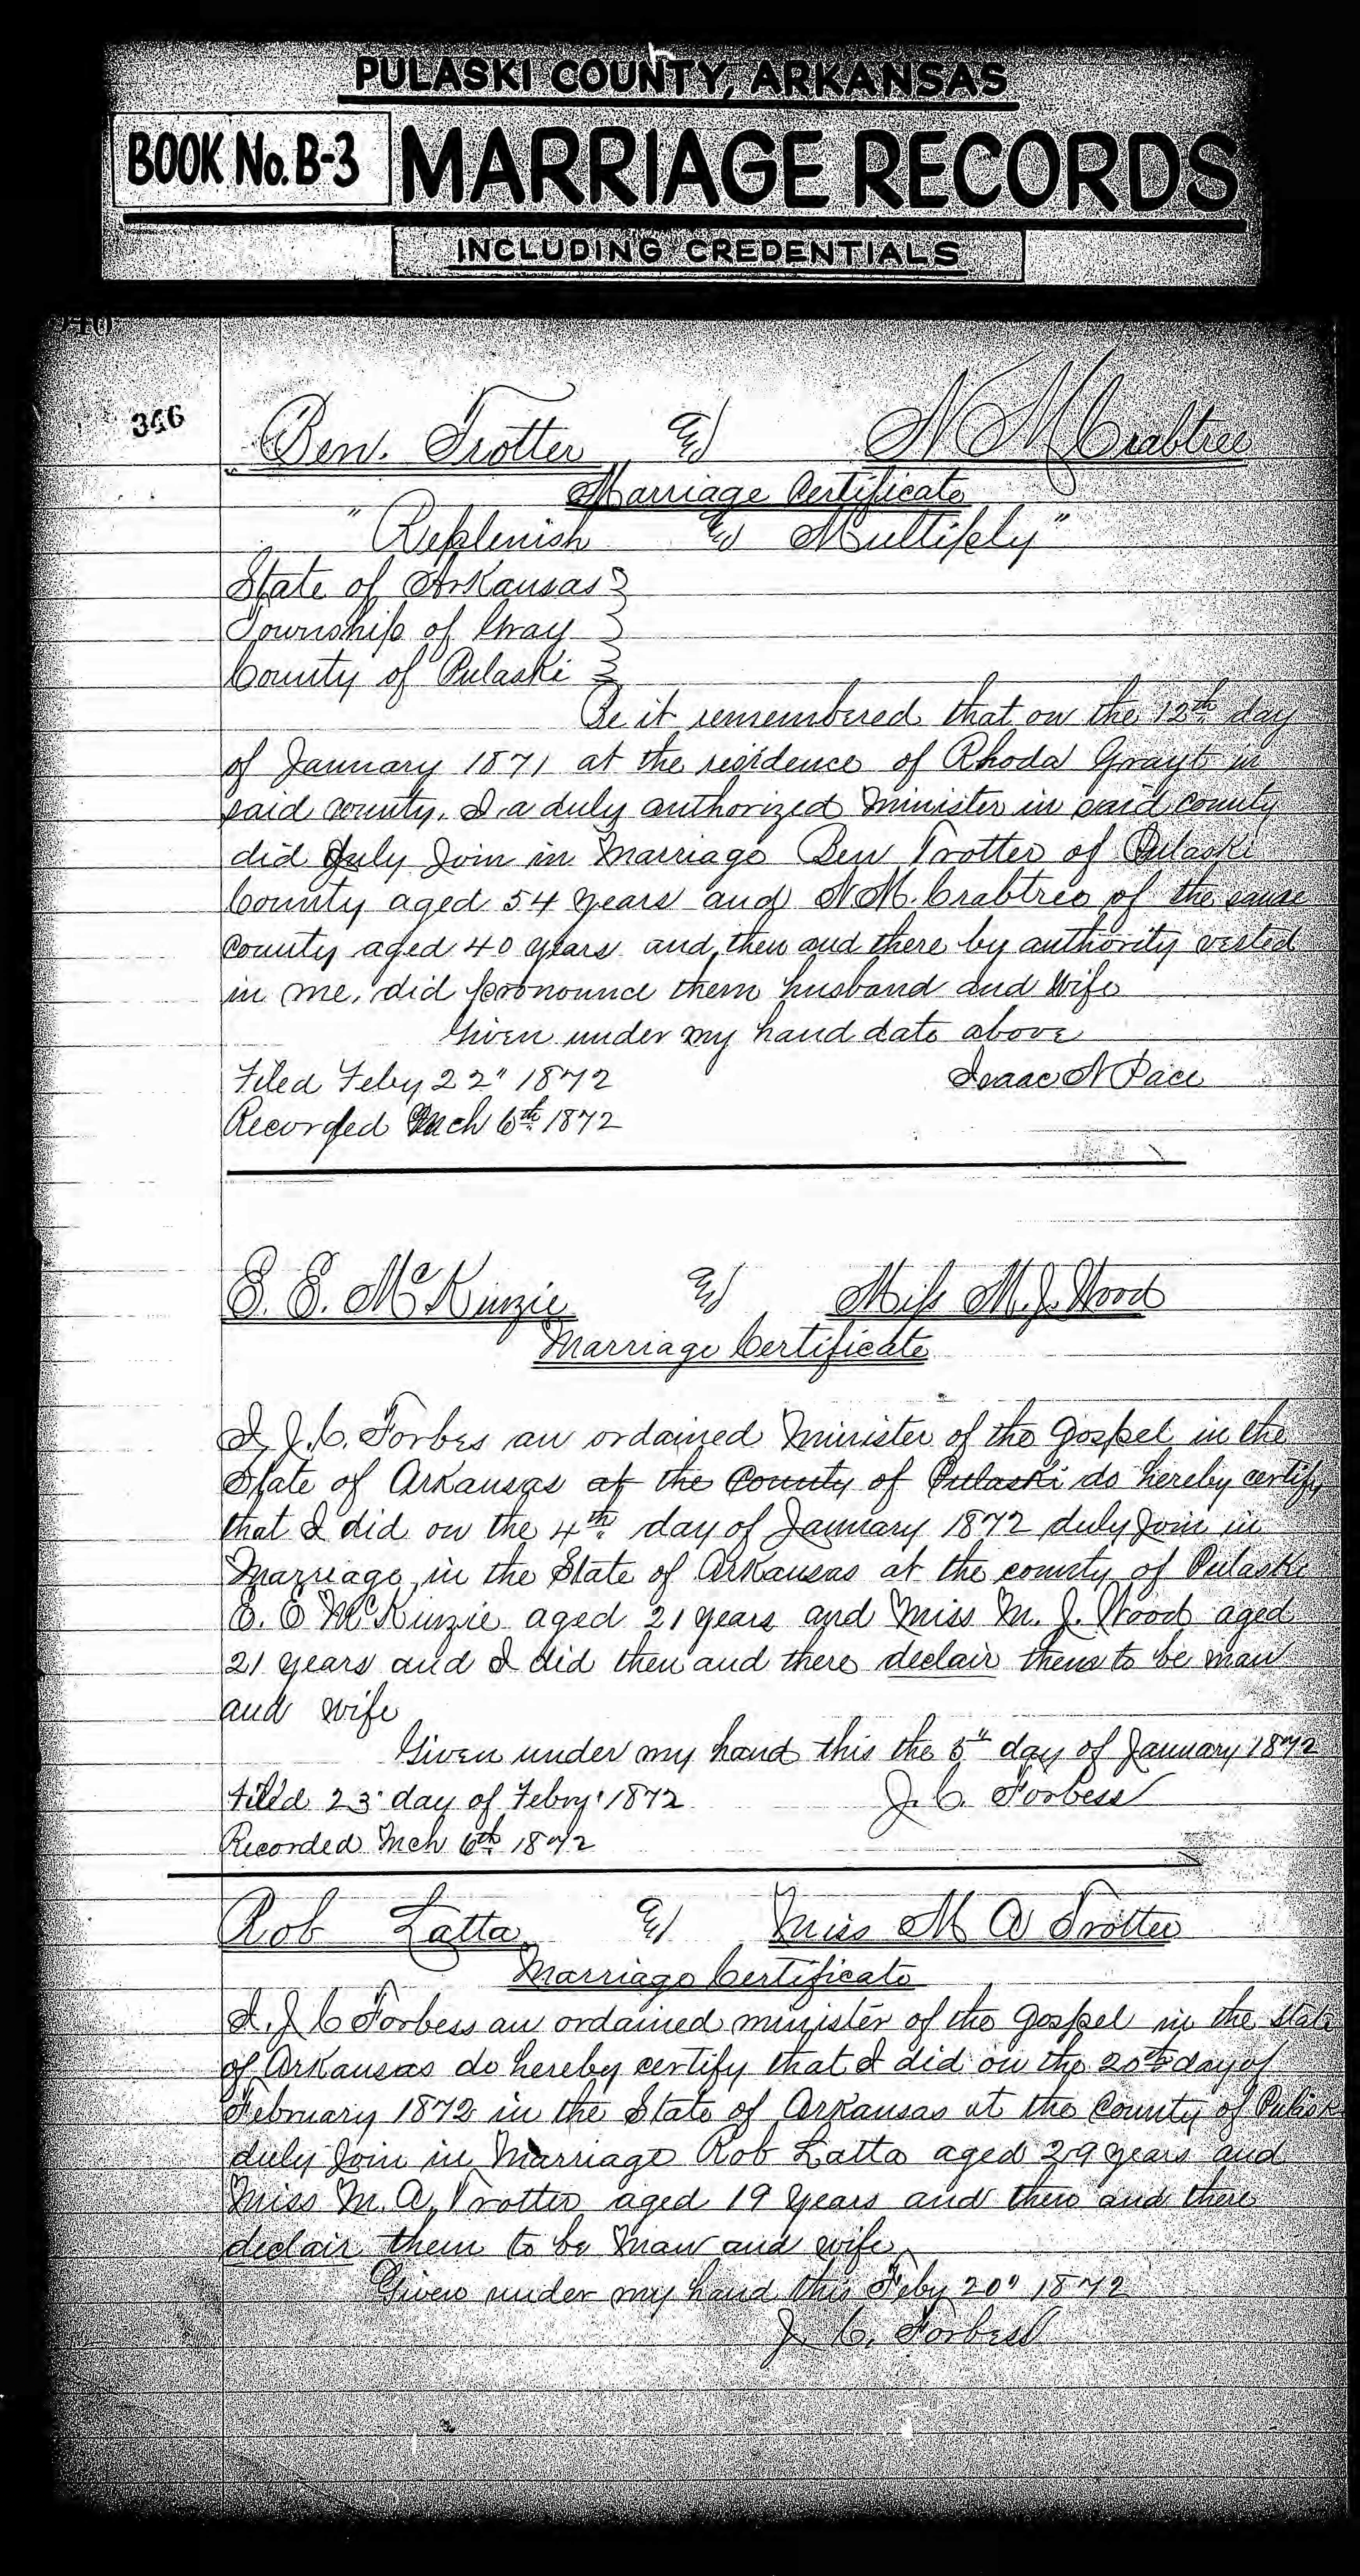 PULASKI COUNTY, ARKANSAS
BOOK No. B-3
MARRIAGE RECORDS
INCLUDING CREDENTIALS
346
Ben. Trotter & N M Crabtree
Marriage Certificate
"Replenish & Multiply"
State of Arkansas
Township of Gray
County of Pulaski
Be it remembered that on the 12th day
of January 1871 at the residence of Rhoda in
said county, I a duly authorized Minister in said county
did duly Join in Marriage Ben Trotter of Pulaski
County aged 54 years and N M. Crabtree of the same
county aged 40 years and then and there by authority vested
in me, did pronounce them husband and Wife
Given under my hand date above
Filed Feby 22" 1872 Isaac N Pace
Recorded Mch 6th 1872
E. E. McKinzie & Miss M. J. Wood
Marriage Certificate
I, J. C. Forbes an ordained Minister of the Gospel in the
State of Arkansas at the County of Pulaski do hereby certify
that I did on the 4th day of January 1872 duly Join in
Marriage in the State of Arkansas at the county of Pulaski
E. E McKinzie aged 21 years and Miss M. J. Wood aged
21 years and I did then and there declair them to be man
and wife
Given under my hand this the 5th day of January 1872
Filed 23 day of Febry 1872 J. C. Forbess
Recorded Mch 6th 1872
Rob Latta & Miss M A Trotter
Marriage Certificate
I. J C Forbess an ordained minister of the Gospel in the State
of Arkansas do hereby certify that I did on the 20th day of
February 1872 in the State of Arkansas at the County of
duly Join in Marriage Rob Latta aged 29 years and
Miss M. A. Trotter aged 19 years and then and there
declair them to be man and wife
Given under my hand this Feby 20" 1872
J. C. Forbess